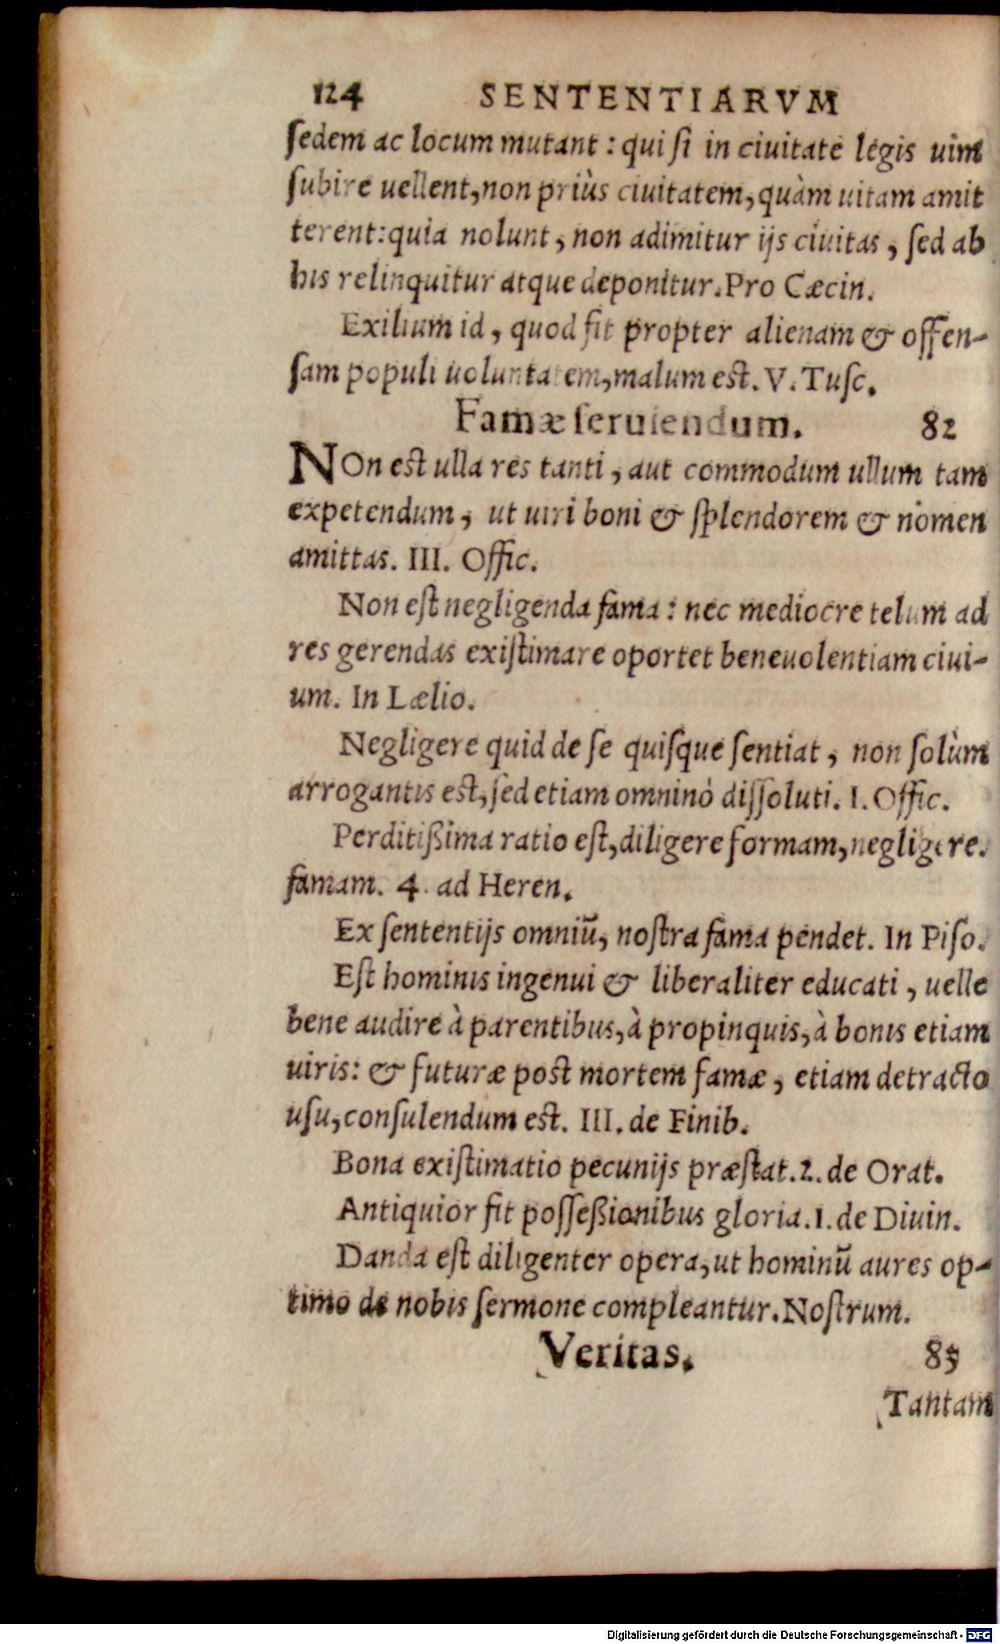 124 SENTENTIARVM
ſedem ac locum mutant : qui ſi in ciuitate legis uim
ſubire uellent, non priùs ciuitatem, quàm uitam amit
terent: quia nolunt, non adimitur ijs ciuitas, ſed ab
his relinquitur atque deponitur. Pro Cæcin.
Exilium id, quod fit propter alienam & offen-
ſam populi uoluntatem, malum est. V. Tuſc.
Famæ ſeruiendum. 82
NOn est ulla res tanti, aut commodum ullum tam
expetendum, ut uiri boni & ſplendorem & nomen
amittas. III. Offic.
Non eſt negligenda fama : nec mediocre telum ad
res gerendas exiſtimare oportet beneuolentiam ciui-
um. In Lælio.
Negligere quid de ſe quiſque ſentiat, non ſolùm
arrogantis est, ſed etiam omninò diſſoluti. I. Offic.
Perditißima ratio eſt, diligere formam, negligere.
famam. 4. ad Heren.
Ex ſententijs omniũ, noſtra fama pendet. In Piſo.
Eſt hominis ingenui & liberaliter educati, uelle
bene audire à parentibus, à propinquis, à bonis etiam
uiris: & futuræ post mortem famæ, etiam detracto
uſu, conſulendum est. III. de Finib.
Bona exiſtimatio pecunijs præſtat. 2. de Orat.
Antiquior fit poſſeßionibus gloria. 1. de Diuin.
Danda eſt diligenter opera, ut hominũ aures op-
timo de nobis ſermone compleantur. Noſtrum.
Veritas. 83
Tantam
Digitalisierung gefördert durch die Deutsche Forschungsgemeinschaft - DFG